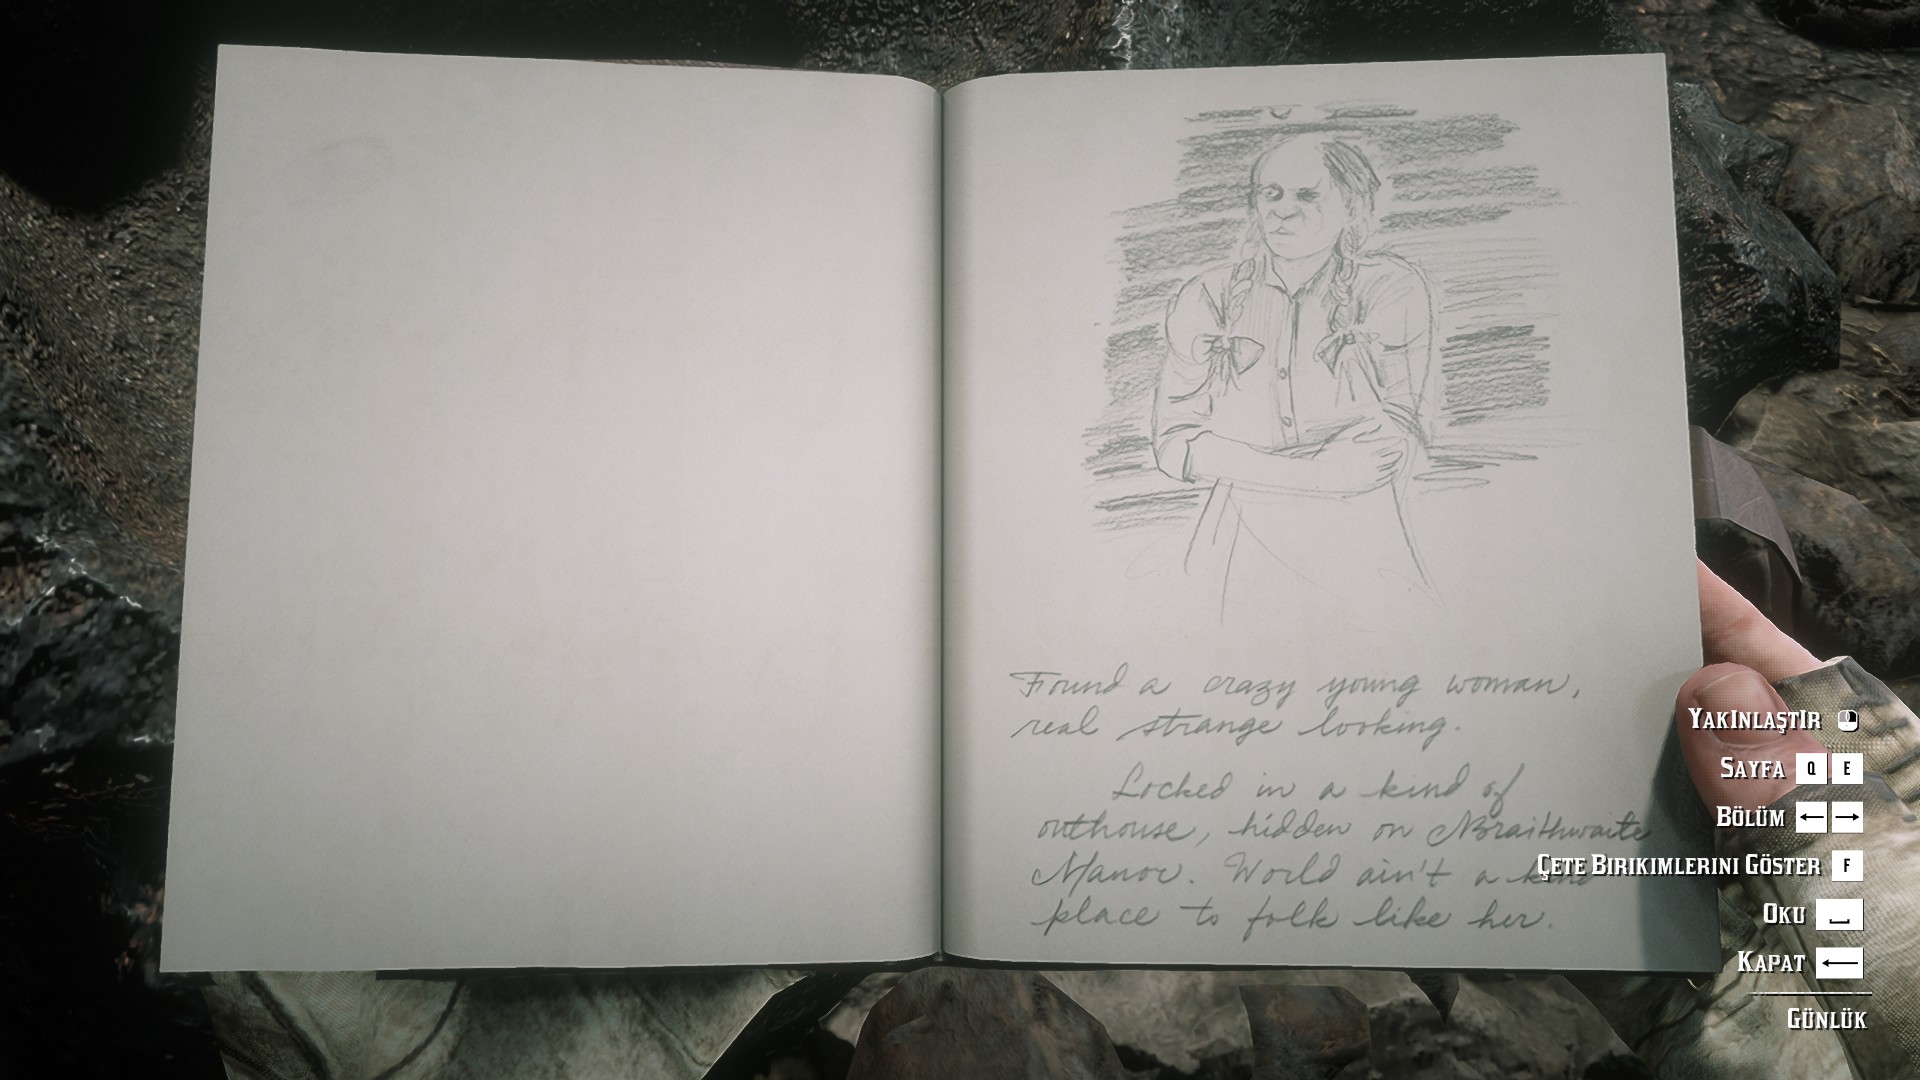 Found a crazy young woman,
real strange looking.
Locked in a kind of
outhouse, hidden on Braithwaite
Manor. World ain't a kind
place to folk like her.
YAKINLAŞTIR
SAYFA Q E
BÖLÜM ← →
ÇETE BIRIKIMLERINI GÖSTER F
OKU
KAPAT ←
GÜNLÜK